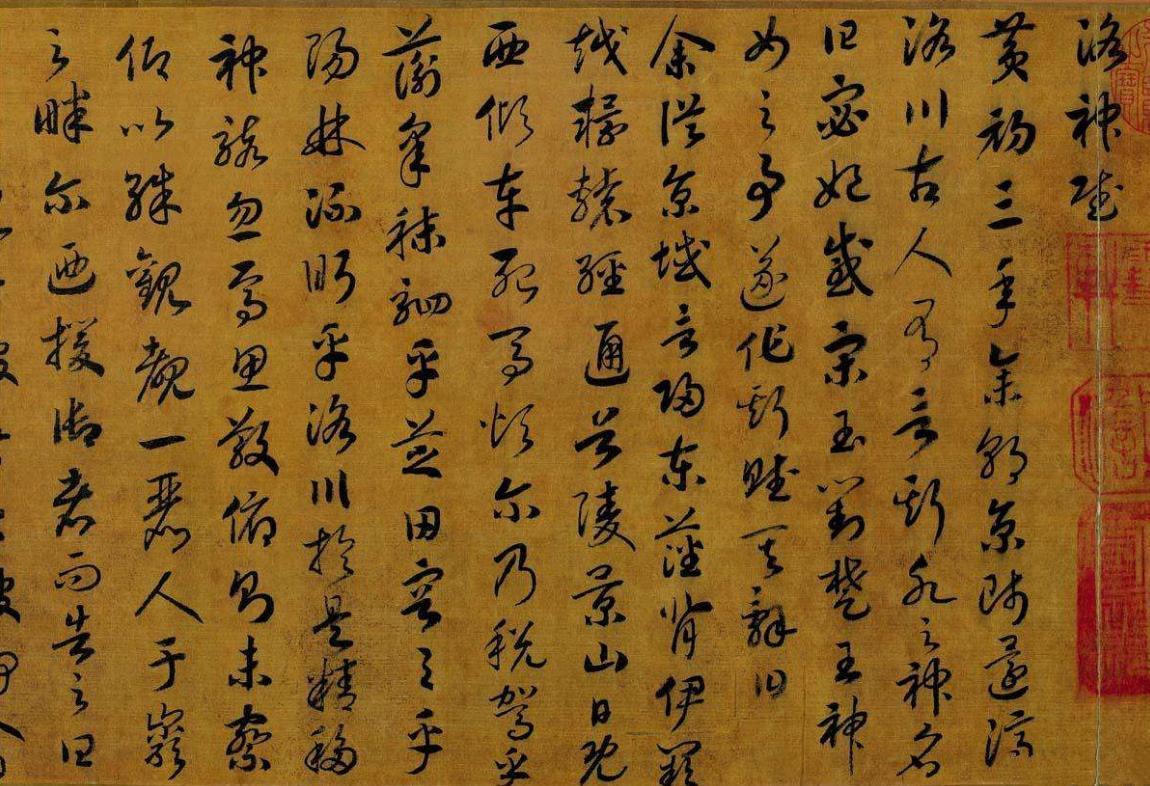 洛神賦
黃初三年余朝京師還濟
洛川古人有言斯水之神名
曰宓妃感宋玉對楚王神
女之事遂作斯賦其辭曰
余從京域言歸東藩背伊闕
越轘轅經通谷陵景山日既
西傾車殆馬煩尔乃稅駕乎
蘅皋秣駟乎芝田容與乎
陽林流眄乎洛川於是精移
神駭忽焉思散俯則未察
仰以殊觀覩一麗人于巖
之畔尔迺援御者而告之曰